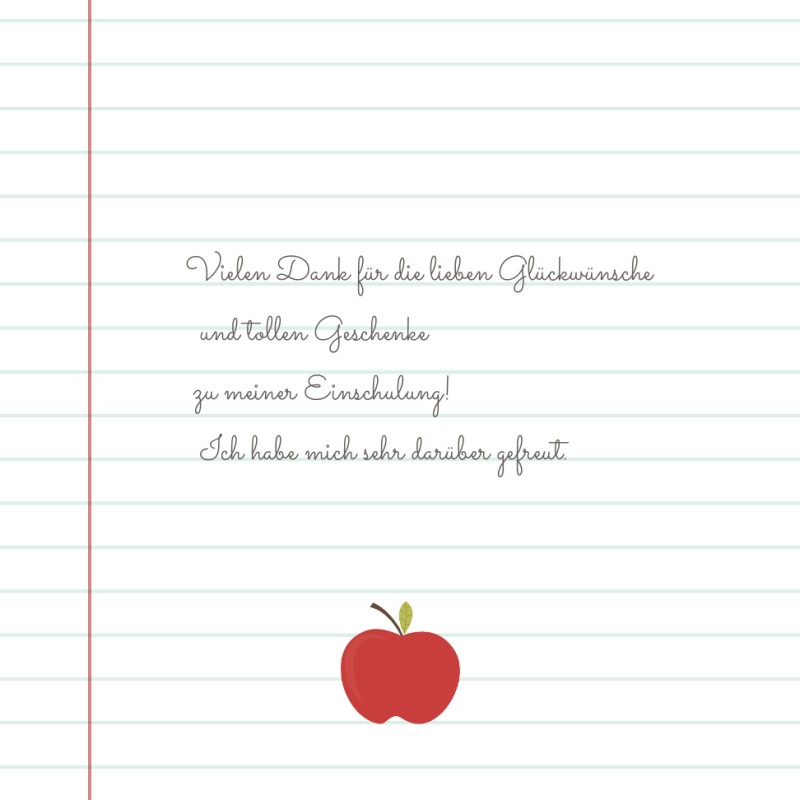 Vielen Dank für die lieben Glückwünsche
und tollen Geschenke
zu meiner Einschulung!
Ich habe mich sehr darüber gefreut.